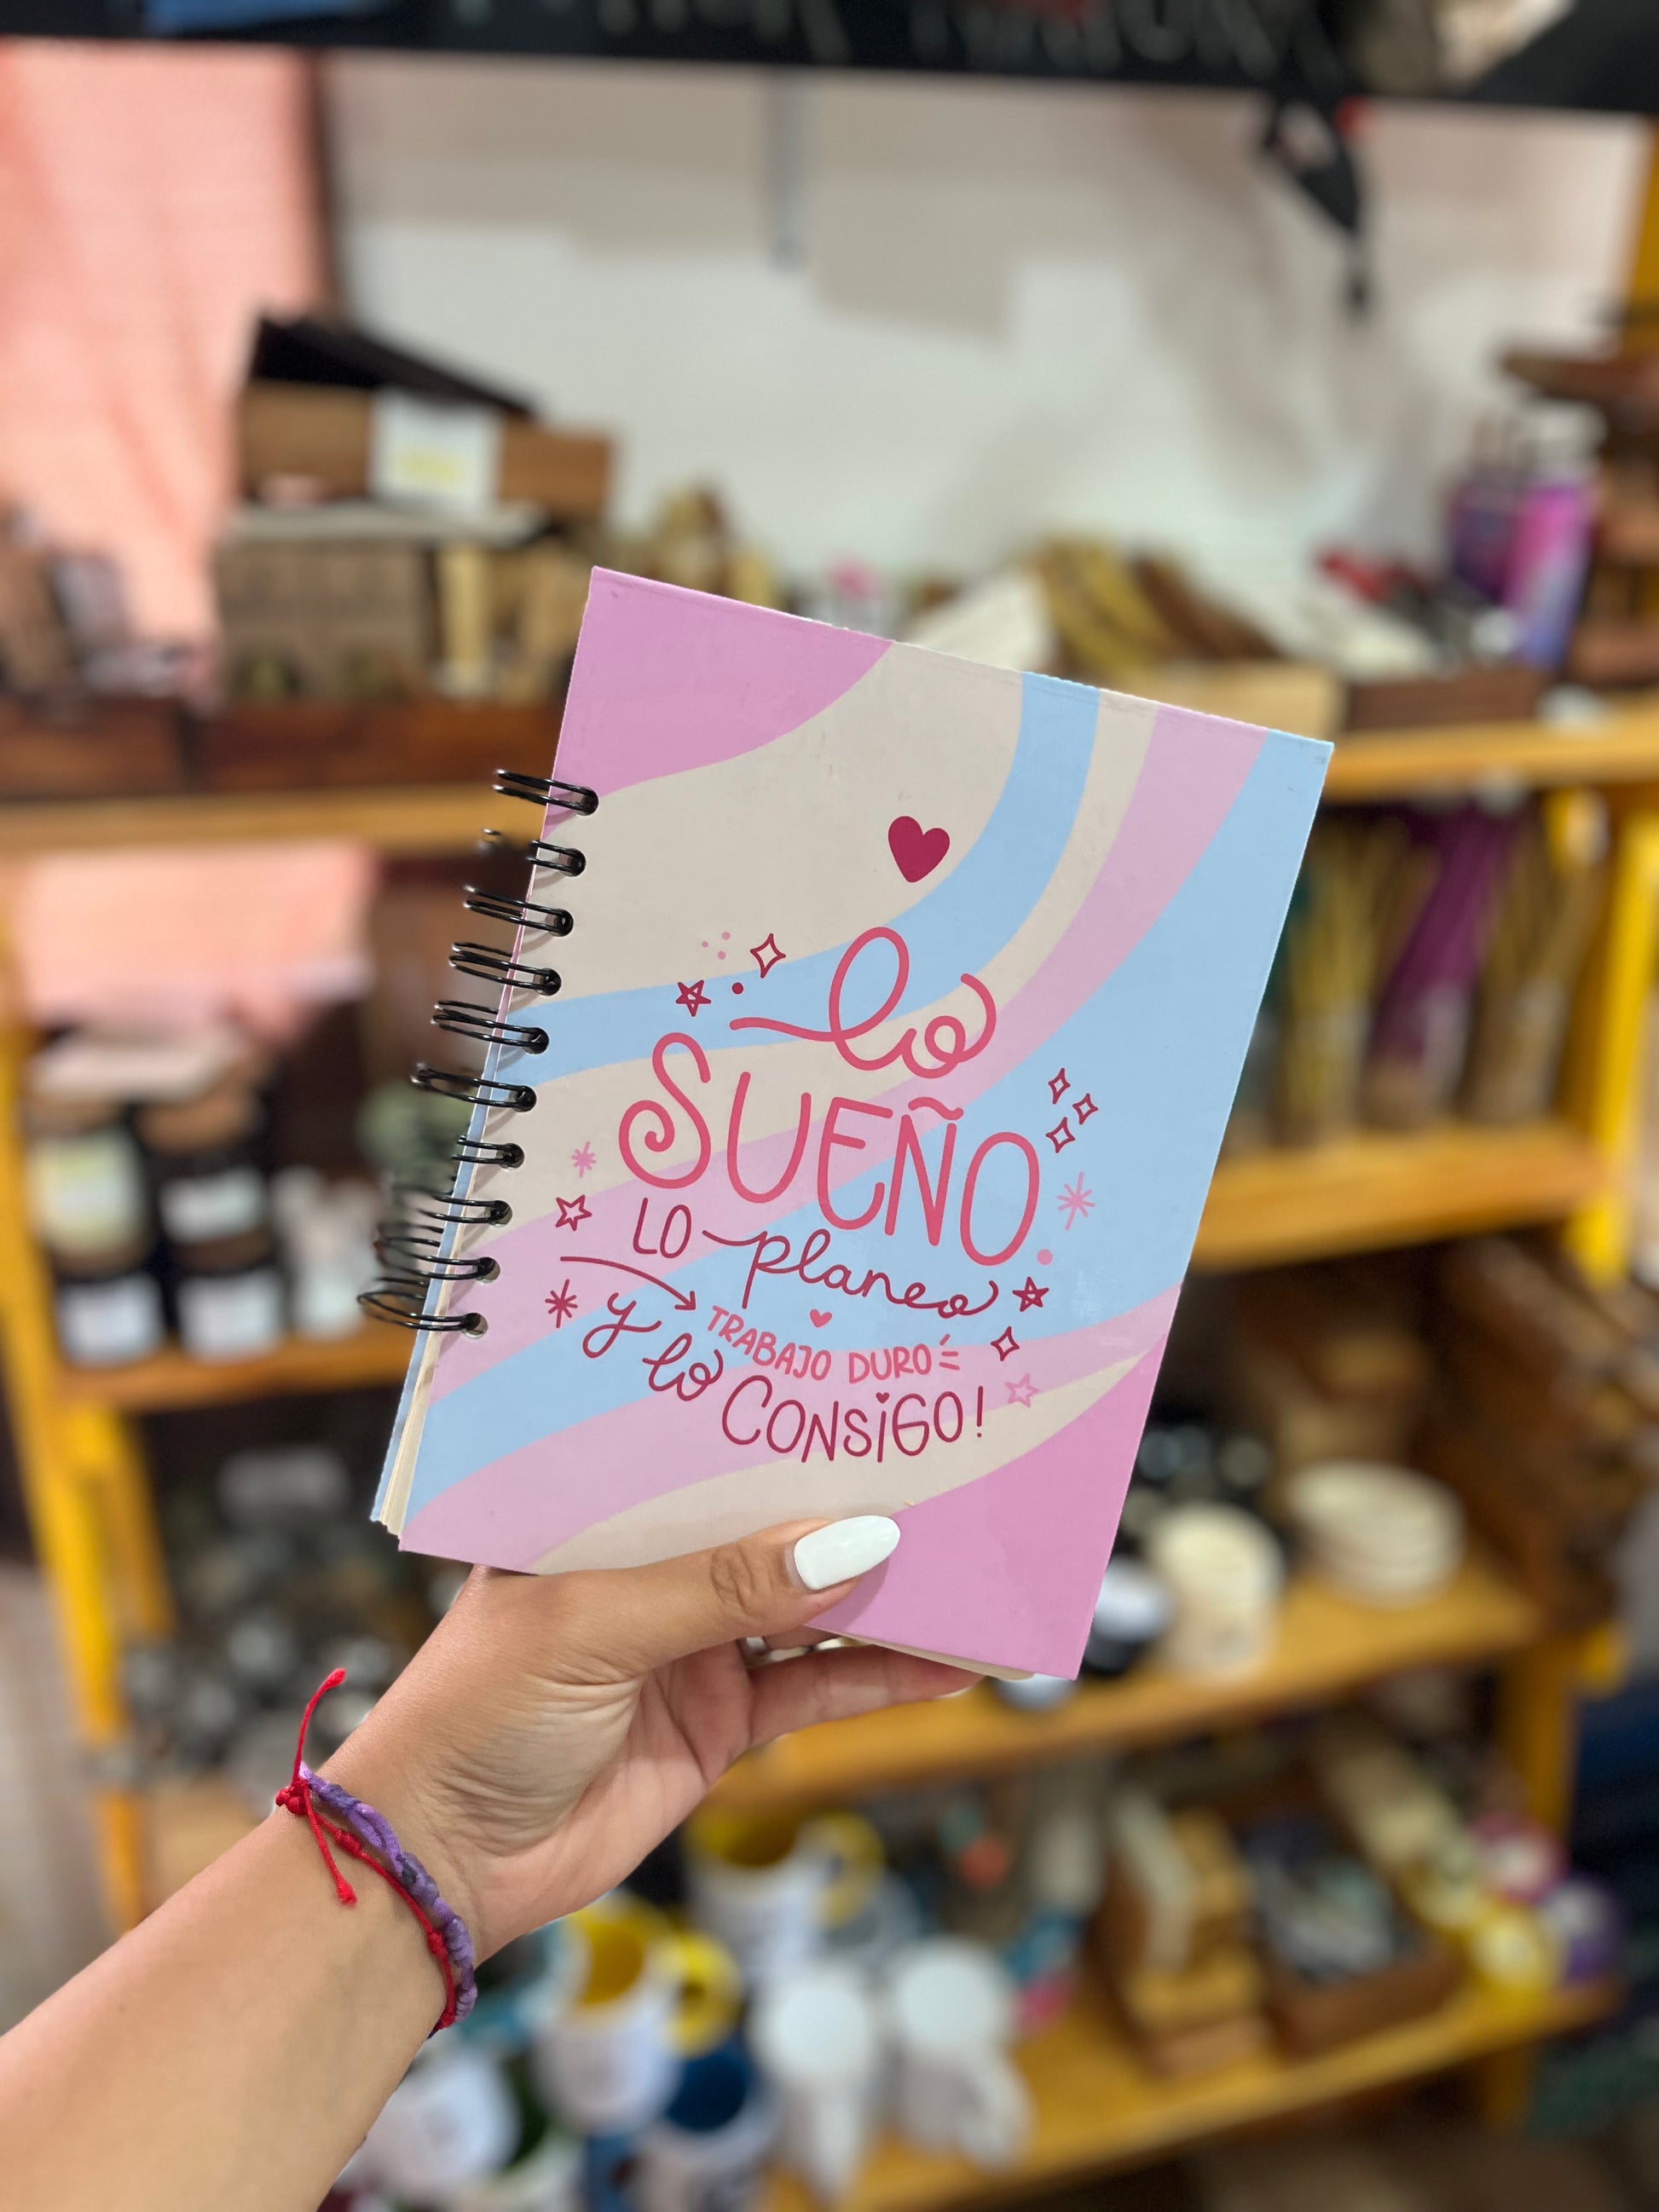 lo
SUEÑO
LO planeo
TRABAJO DURO
y lo
CONSIGO!